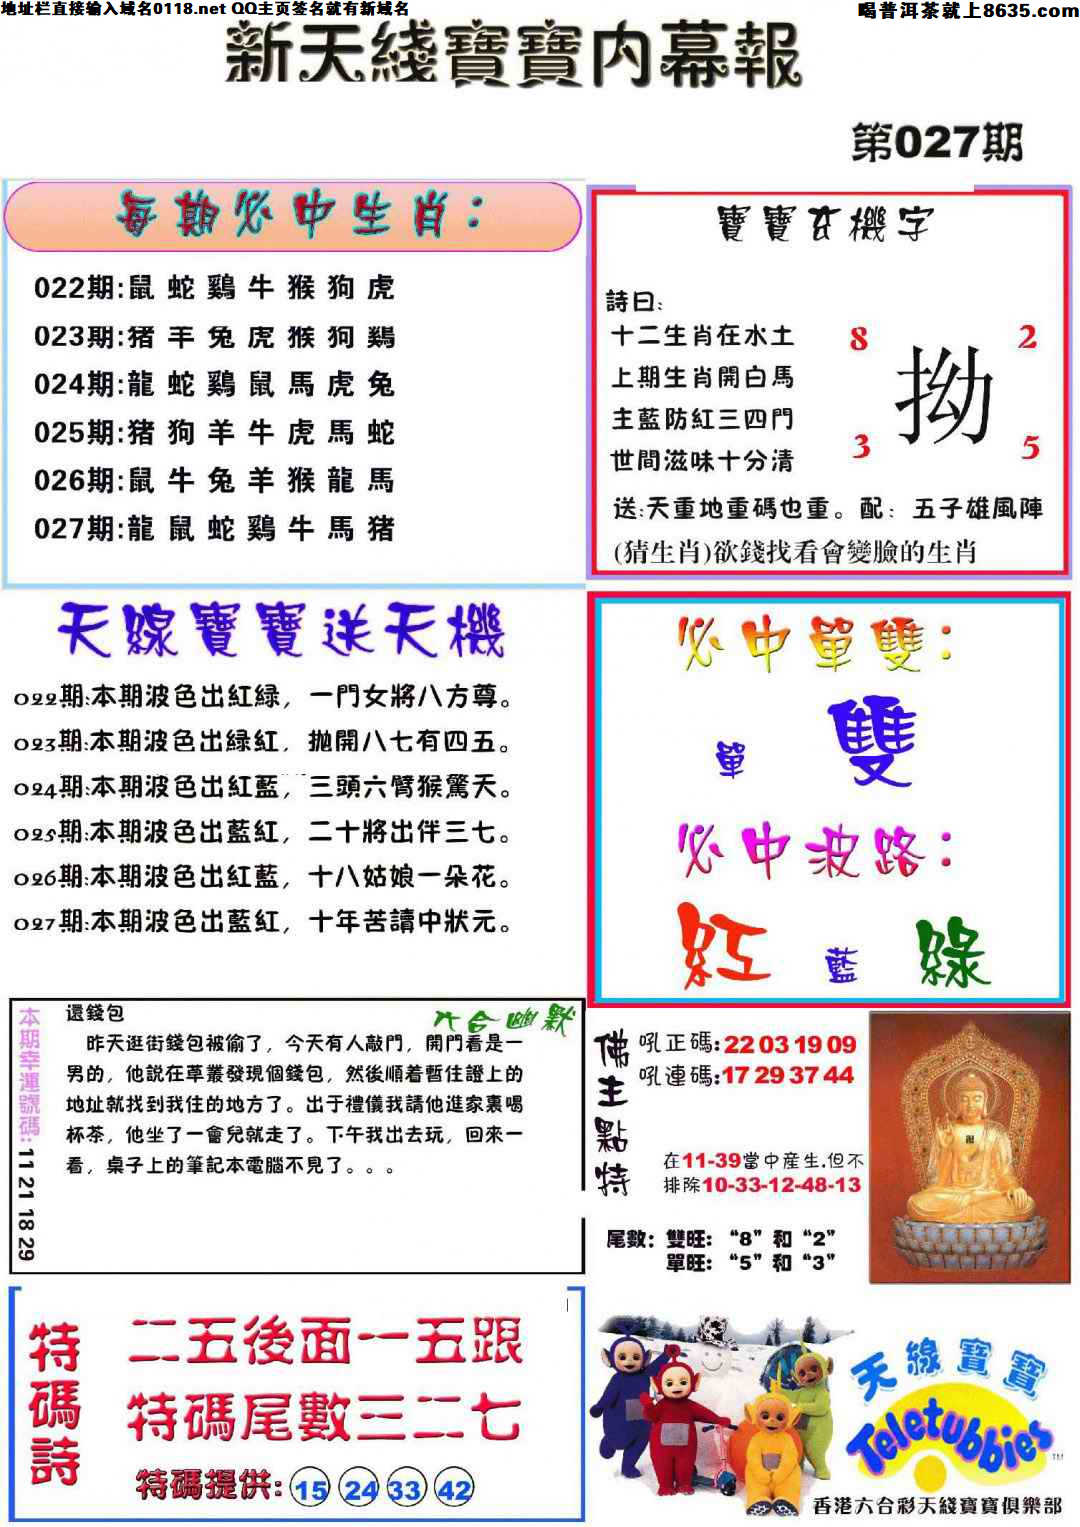 地址栏直接输入域名0118.net QQ主页签名就有新域名
喝普洱茶就上8635.com
新天綫寶寶内幕報
第027期
每期必中生肖：
022期:鼠 蛇 鷄 牛 猴 狗 虎
023期:猪 羊 兔 虎 猴 狗 鷄
024期:龍 蛇 鷄 鼠 馬 虎 兔
025期:猪 狗 羊 牛 虎 馬 蛇
026期:鼠 牛 兔 羊 猴 龍 馬
027期:龍 鼠 蛇 鷄 牛 馬 猪
寶寶玄機字
詩曰:
十二生肖在水土
上期生肖開白馬
主藍防紅三四門
世間滋味十分清
8 2
拗
3 5
送:天重地重碼也重。配：五子雄風陣
(猜生肖)欲錢找看會變臉的生肖
天線寶寶送天機
022期:本期波色出紅緑，一門女將八方尊。
023期:本期波色出緑紅，拋開八七有四五。
024期:本期波色出紅藍，三頭六臂猴驚天。
025期:本期波色出藍紅，二十將出伴三七。
026期:本期波色出紅藍，十八姑娘一朵花。
027期:本期波色出藍紅，十年苦讀中狀元。
必中單雙：
單 雙
必中波路：
紅 藍 綠
本期幸運號碼:11 21 18 29
六合幽默
還錢包
昨天逛街錢包被偷了，今天有人敲門，開門看是一
男的，他説在草叢發現個錢包，然後順着暫住證上的
地址就找到我住的地方了。出于禮儀我請他進家裏喝
杯茶，他坐了一會兒就走了。下午我出去玩，回來一
看，桌子上的筆記本電腦不見了。。。
佛主點特
吼正碼:22 03 19 09
吼連碼:17 29 37 44
在11-39當中産生.但不
排除10-33-12-48-13
尾數：雙旺：“8”和“2”
單旺：“5”和“3”
特碼詩
二五後面一五跟
特碼尾數三二七
特碼提供: 15 24 33 42
天線寶寶
Teletubbies
TM
香港六合彩天綫寶寶俱樂部